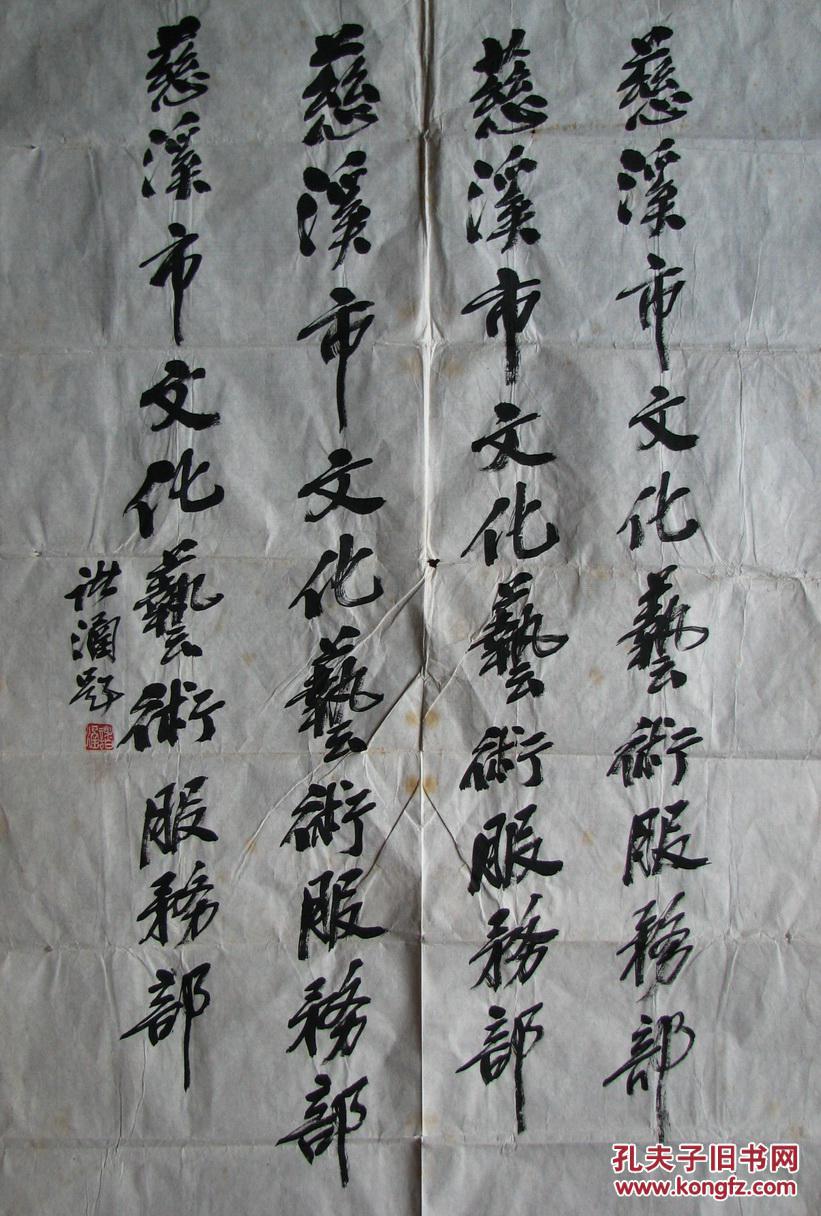 慈溪市文化藝術服務部
慈溪市文化藝術服務部
慈溪市文化藝術服務部
慈溪市文化藝術服務部
題
孔夫子旧书网
www.kongfz.com